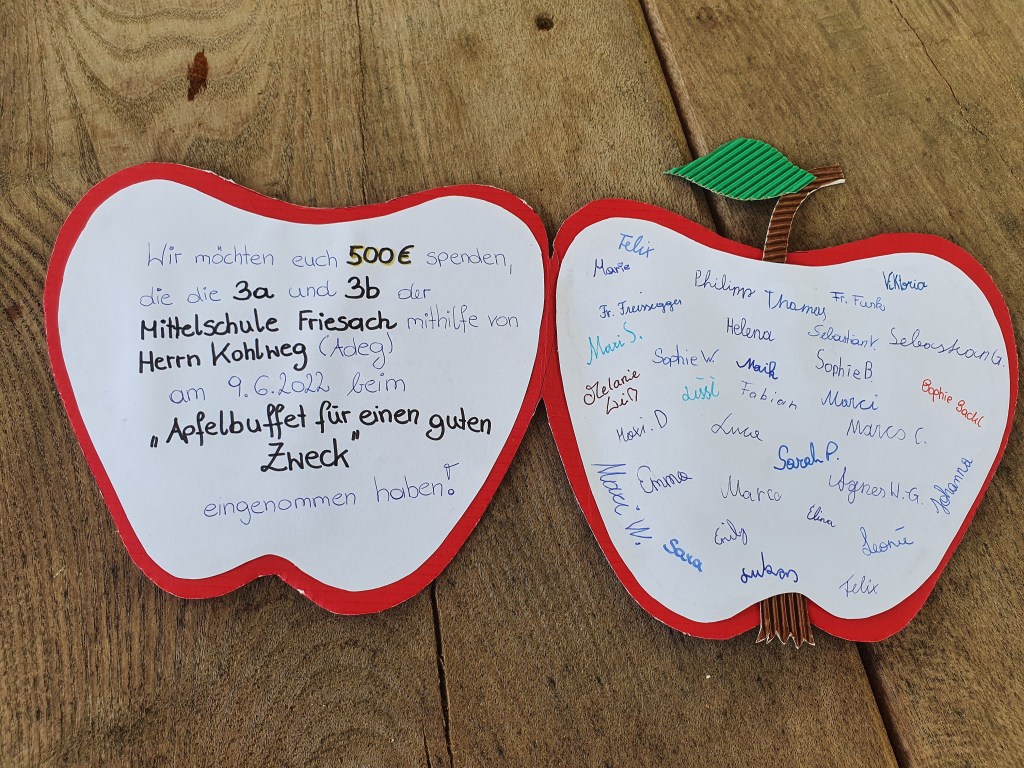 Wir möchten euch 500€ spenden,
die die 3a und 3b der
Mittelschule Friesach mithilfe von
Herrn Kohlweg (Adeg)
am 9.6.2022 beim
„Apfelbuffet für einen guten
Zweck"
eingenommen haben!
Felix
Marie
Philipp
Viktoria
Fr. Freissegger
Thomas
Fr. Funko
Mari S.
Helena
Sebastian V.
Sebastian G.
Sophie W.
Maik
Sophie B.
Melanie
Lissi
Fabian
Marci
Sophie Backl
Maxi. D
Luca
Marcs C.
Sarah P.
Marci W.
Emma
Marco
Agnes W.-G.
Johanna
Elina
Emily
Leonie
Sara
Lukas
Felix